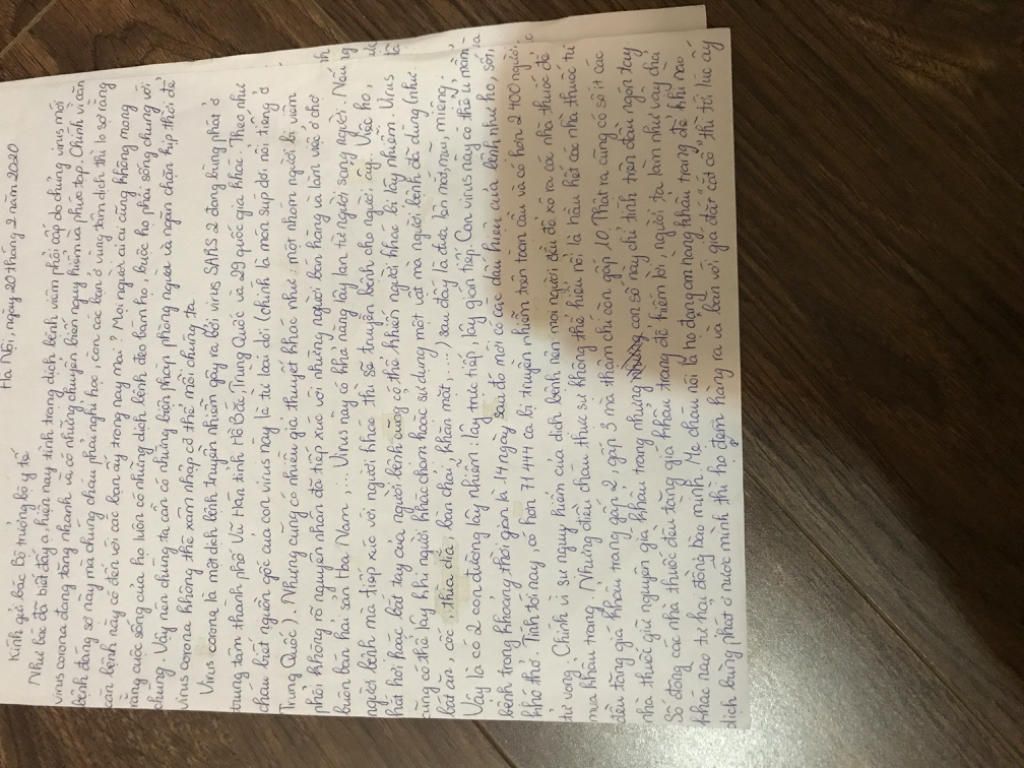 Hà Nội, ngày 20 tháng 2 năm 2020
Kính gửi bác Bộ trưởng bộ y tế
Như bác đã biết đấy ạ hiện nay tình trạng dịch bệnh viêm phổi cấp do chủng virus mới
virus corona đang tăng nhanh và có những chuyển biến nguy hiểm và phức tạp. Chính vì căn
bệnh đáng sợ này mà chúng cháu phải nghỉ học, còn các bạn ở vùng tâm dịch thì lo sợ rằng
căn bệnh này có đến với các bạn ấy trong nay mai? Mọi người ai ai cũng không mong
rằng cuộc sống của họ luôn có những dịch bệnh đeo bám họ, buộc họ phải sống chung với
chúng. Vậy nên chúng ta cần có những biện pháp phòng ngừa và ngăn chặn kịp thời để
virus corona không thể xâm nhập cơ thể mỗi chúng ta.
Virus corona là một dịch bệnh truyền nhiễm gây ra bởi virus SARS 2 đang bùng phát ở
trung tâm thành phố Vũ Hán tỉnh Hồ Bắc, Trung Quốc và 29 quốc gia khác. Theo như
cháu biết nguồn gốc của con virus này là từ loài dơi (chính là món súp dơi nổi tiếng ở
Trung Quốc). Nhưng cũng có nhiều giả thuyết khác như: một nhóm người bị viêm
phổi không rõ nguyên nhân đã tiếp xúc với những người bán hàng và làm việc ở chợ
buôn bán hải sản Hoa Nam,... Virus này có khả năng lây lan từ người sang người. Nếu
người bệnh mà tiếp xúc với người khác thì sẽ truyền bệnh cho người ấy. Việc ho,
hắt hơi hoặc bắt tay của người bệnh cũng có thể khiến người khác bị lây nhiễm. Virus
cũng có thể lây khi người khác chạm hoặc sử dụng một vật mà người bệnh đã dùng (như:
bát ăn, cốc, thìa dĩa, bàn chải, khăn mặt,...) sau đấy là đưa lên mắt, mũi, miệng.
Vậy là có 2 con đường lây nhiễm: lây trực tiếp, lây gián tiếp. Con virus này có thể ủ mầm
bệnh trong khoảng thời gian là 14 ngày sau đó mới có các dấu hiệu của bệnh như ho, sốt,
khó thở. Tính tới nay, có hơn 71 444 ca bị truyền nhiễm trên toàn cầu và có hơn 2 400 người
tử vong. Chính vì sự nguy hiểm của dịch bệnh nên mọi người đều đổ xô ra các nhà thuốc để
mua khẩu trang. Nhưng điều cháu thực sự không thể hiểu nổi là hầu hết các nhà thuốc tư
đều tăng giá khẩu trang gấp 2, gấp 3 mà thậm chí còn gấp 10. Thật ra cũng có số ít các
nhà thuốc giữ nguyên giá khẩu trang nhưng con số này chỉ tính trên đầu ngón tay
Số đông các nhà thuốc đều tăng giá khẩu trang để kiếm lời, người ta làm như vậy chả
khác nào tư hại đồng bào mình. Mẹ cháu nói là họ đang om hàng khẩu trang để khi nào
dịch bùng phát ở nước mình thì họ đem hàng ra và bán với giá "cắt cổ" thì tới lúc ấy